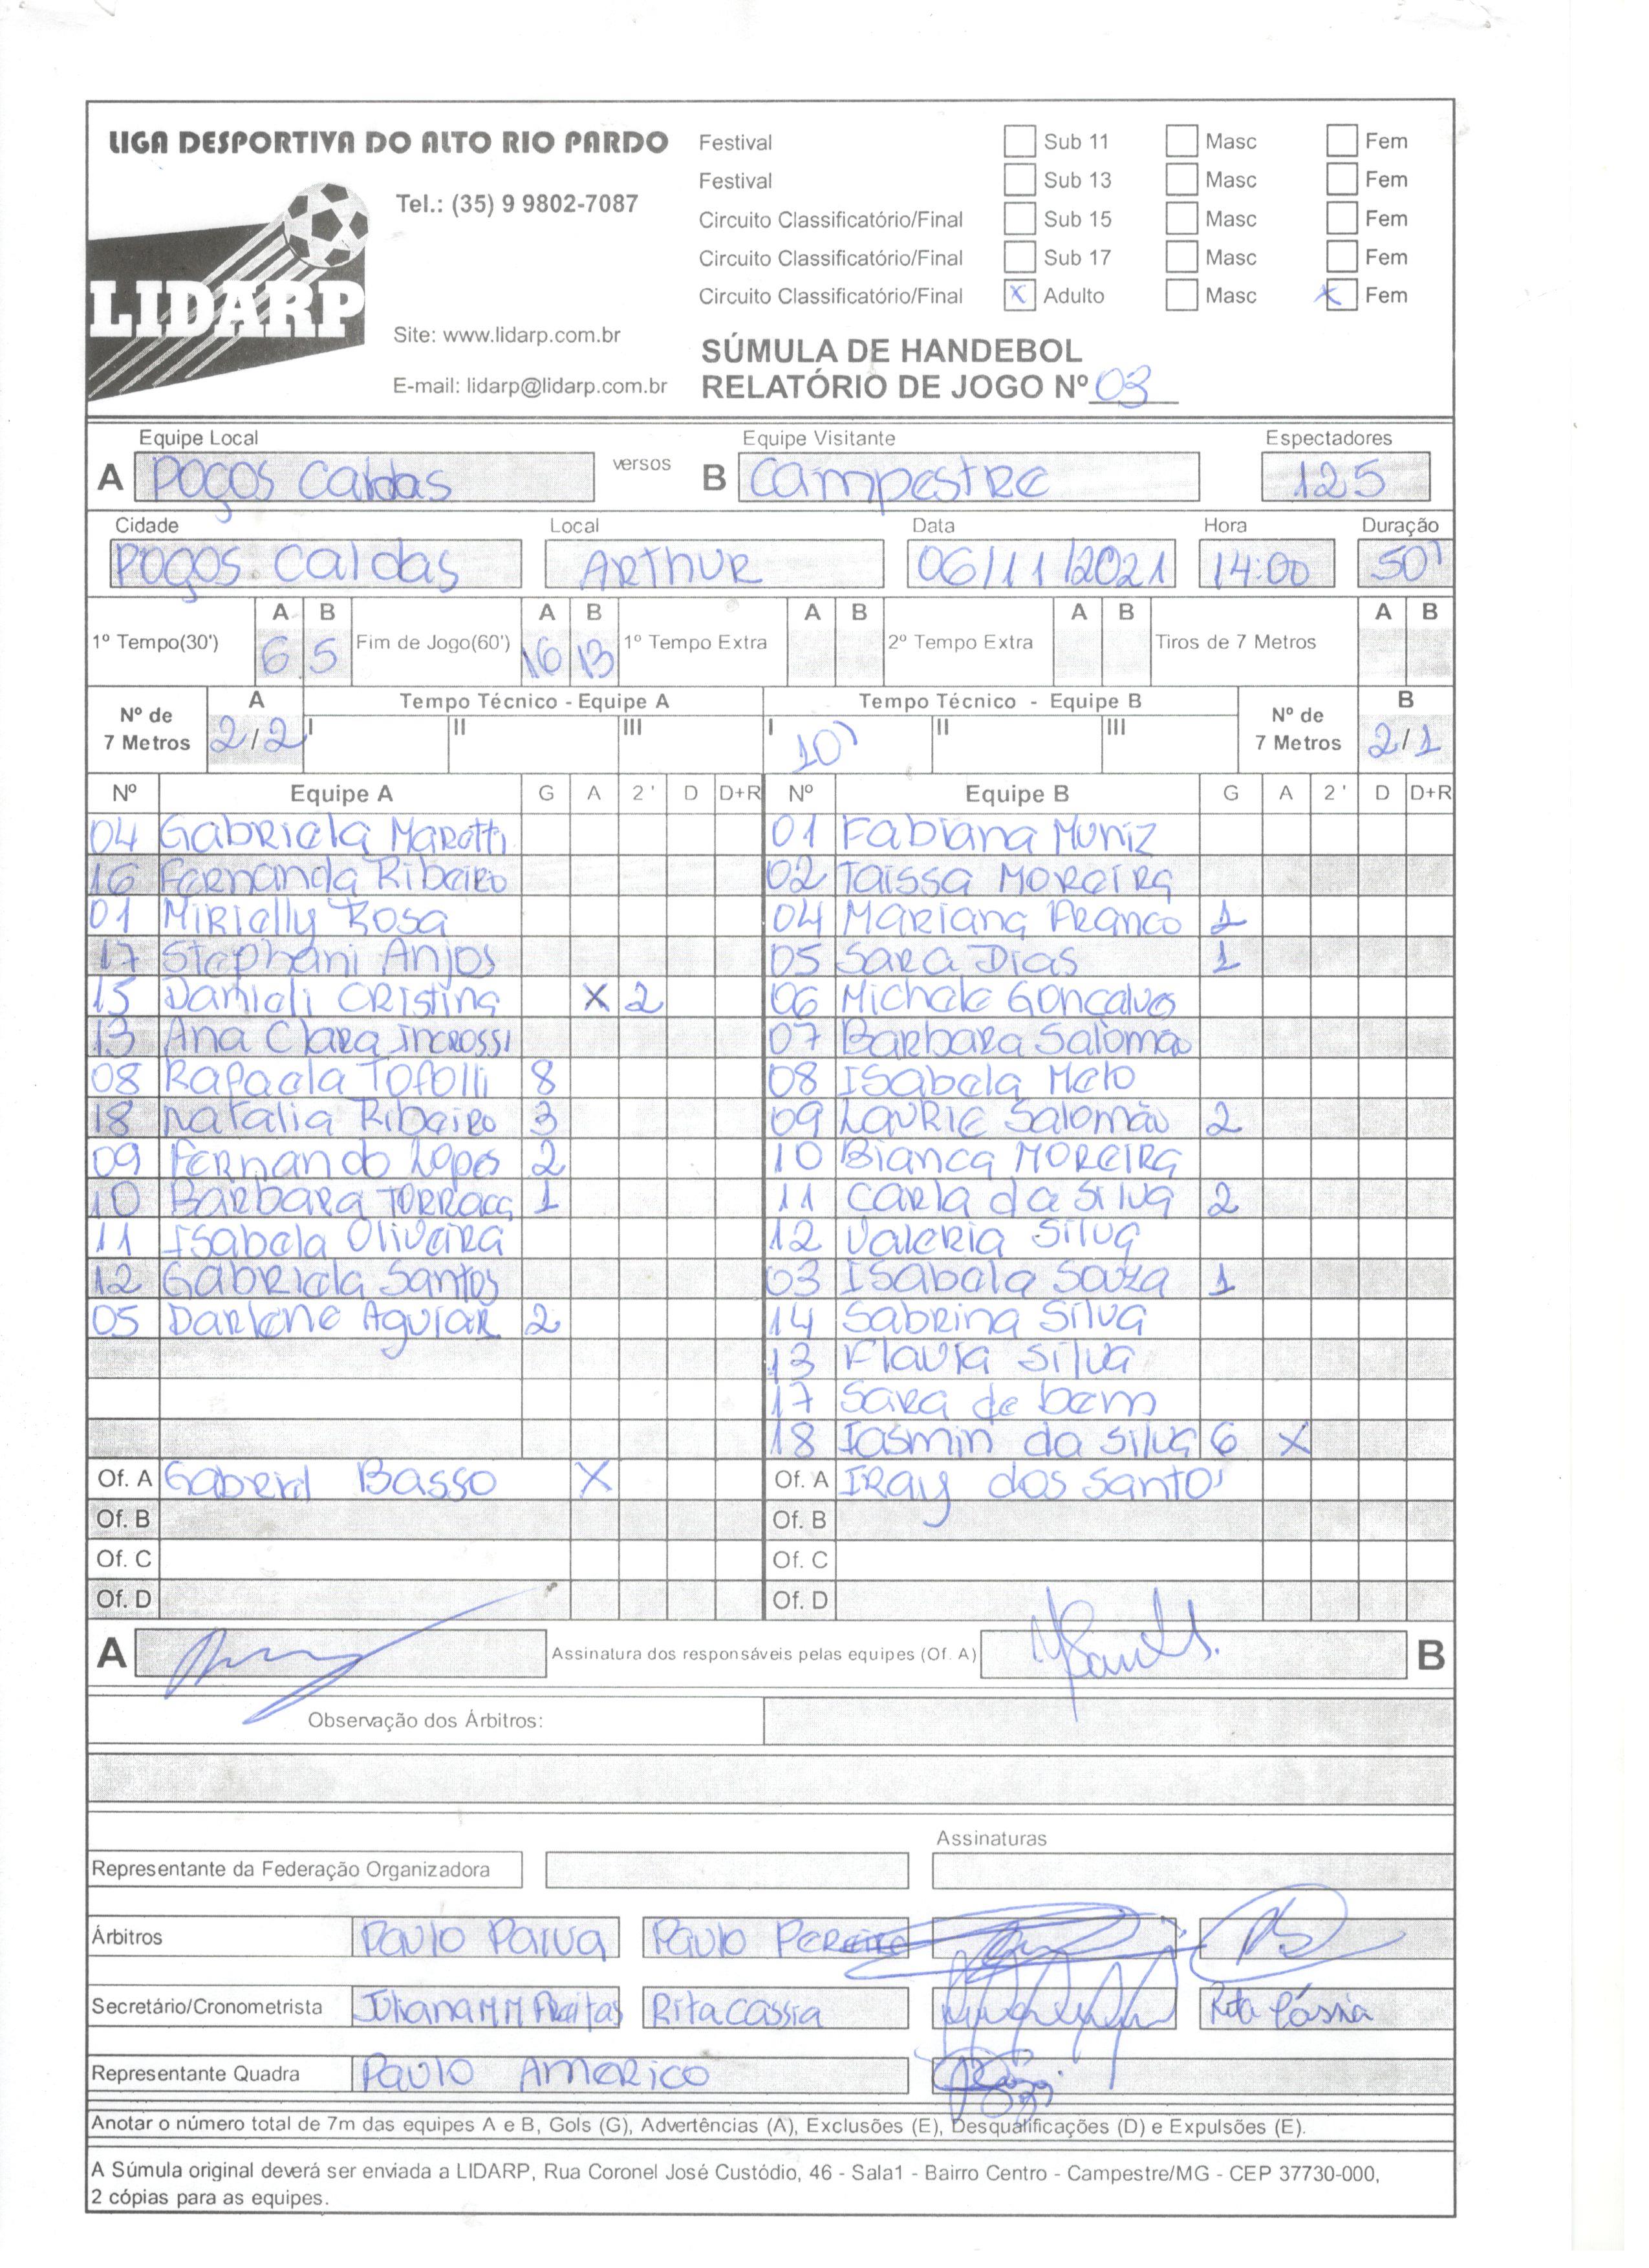 LIGA DESPORTIVA DO ALTO RIO PARDO
Tel.: (35) 9 9802-7087
LIDARP
Site: www.lidarp.com.br
E-mail: lidarp@lidarp.com.br
Festival Sub 11 Masc Fem
Festival Sub 13 Masc Fem
Circuito Classificatório/Final Sub 15 Masc Fem
Circuito Classificatório/Final Sub 17 Masc Fem
Circuito Classificatório/Final X Adulto Masc X Fem
SÚMULA DE HANDEBOL
RELATÓRIO DE JOGO Nº 03
Equipe Local Equipe Visitante Espectadores
A Poços Caldas versos B Campestre 125
Cidade Local Data Hora Duração
Poços Caldas Arthur 06/11/2021 14:00 50'
A B A B A B A B A B
1º Tempo(30') 6 5 Fim de Jogo(60') 16 13 1º Tempo Extra 2º Tempo Extra Tiros de 7 Metros
Nº de 7 Metros A 2/2 Tempo Técnico - Equipe A I II III Tempo Técnico - Equipe B I 10' II III Nº de 7 Metros B 2/1
Nº Equipe A G A 2' D D+R Nº Equipe B G A 2' D D+R
04 Gabriela Marotti 01 Fabiana Muniz
16 Fernanda Ribeiro 02 Taissa Moreira
01 Mirielly Rosa 04 Mariana Franco 1
17 Stephani Anjos 05 Sara Dias 1
15 Danieli Cristina X 2 06 Michele Gonçalves
13 Ana Clara Incrossi 07 Barbara Salomão
08 Rafaela Tofolli 8 08 Isabela Melo
18 Natalia Ribeiro 3 09 Laurie Salomão 2
09 Fernando Lopes 2 10 Bianca Moreira
10 Barbara 1 11 Carla da Silva 2
11 Isabela Oliveira 12 Valeria Silva
12 Gabriela Santos 03 Isabela Souza 1
05 Darlene Aguiar 2 14 Sabrina Silva
13 Flavia Silva
17 Sara de bem
18 Iasmin da Silva 6 X
Of. A Gabriel Basso X Of. A Iray dos Santos
Of. B Of. B
Of. C Of. C
Of. D Of. D
A Assinatura dos responsáveis pelas equipes (Of. A) B
Observação dos Árbitros:
Assinaturas
Representante da Federação Organizadora
Árbitros Paulo Paiva Paulo Pereira
Secretário/Cronometrista Juliana M M Freitas Rita Cassia Rita Cássia
Representante Quadra Paulo Americo
Anotar o número total de 7m das equipes A e B, Gols (G), Advertências (A), Exclusões (E), Desqualificações (D) e Expulsões (E).
A Súmula original deverá ser enviada a LIDARP, Rua Coronel José Custódio, 46 - Sala1 - Bairro Centro - Campestre/MG - CEP 37730-000,
2 cópias para as equipes.